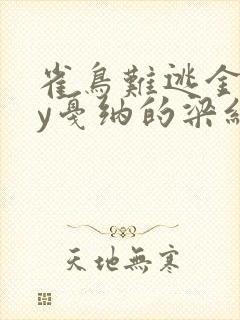 雀鳥難逃金
y戛纳的梁
天地無寒